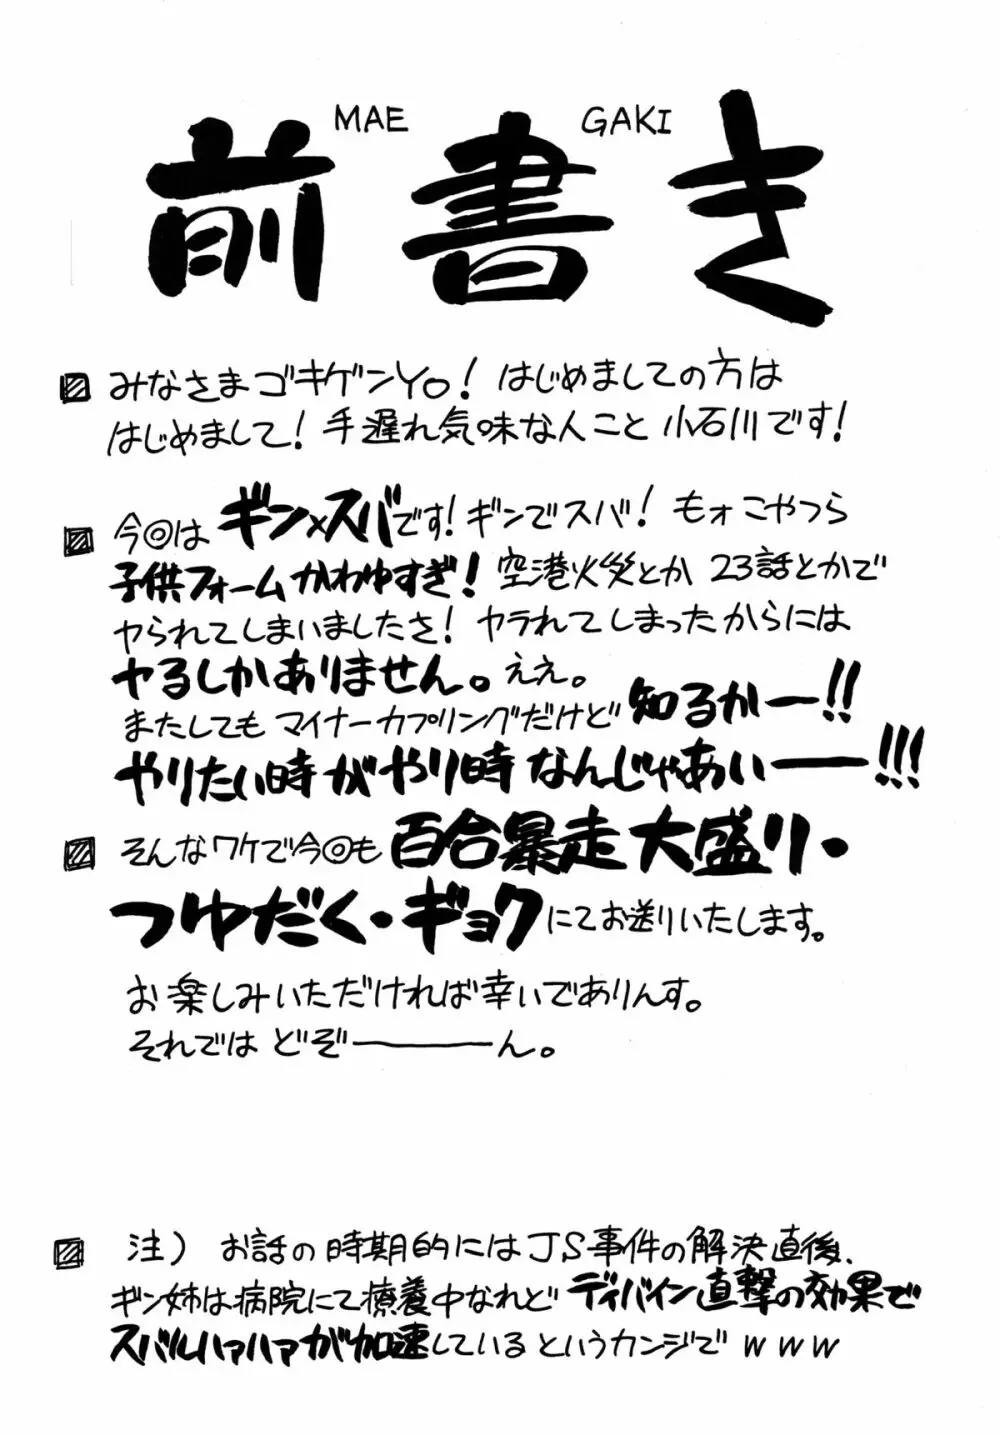 MAE GAKI
前書き
みなさまゴキゲンYo! はじめましての方は
はじめまして! 手遅れ気味な人こと小石川です!
今回はギン×スバです! ギンでスバ! もォこやつら
子供フォームかわゆすぎ! 空港火災とか23話とかで
ヤられてしまいましたさ! ヤラれてしまったからには
ヤるしかありません。ええ。
またしてもマイナーカプリングだけど知るかー!!
やりたい時がやり時なんじゃあいー!!!
そんなワケで今回も百合暴走大盛り・
つゆだく・ギョクにてお送りいたします。
お楽しみいただければ幸いでありんす。
それではどぞーーーん。
注) お話の時期的にはJS事件の解決直後、
ギン姉は病院にて療養中なれどディバイン直撃の効果で
スバルハァハァが加速しているというカンジでwww